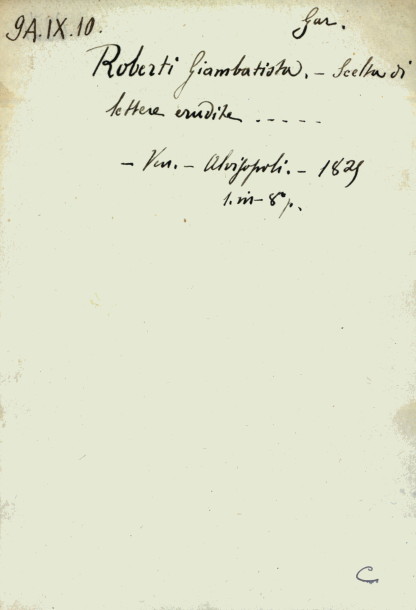 9A.IX.10.
Gar.
Roberti Giambatista. - Scelta di
lettere erudite . . . . .
- Ven. - Alvisopoli. - 1825
1. in - 8 p.
C